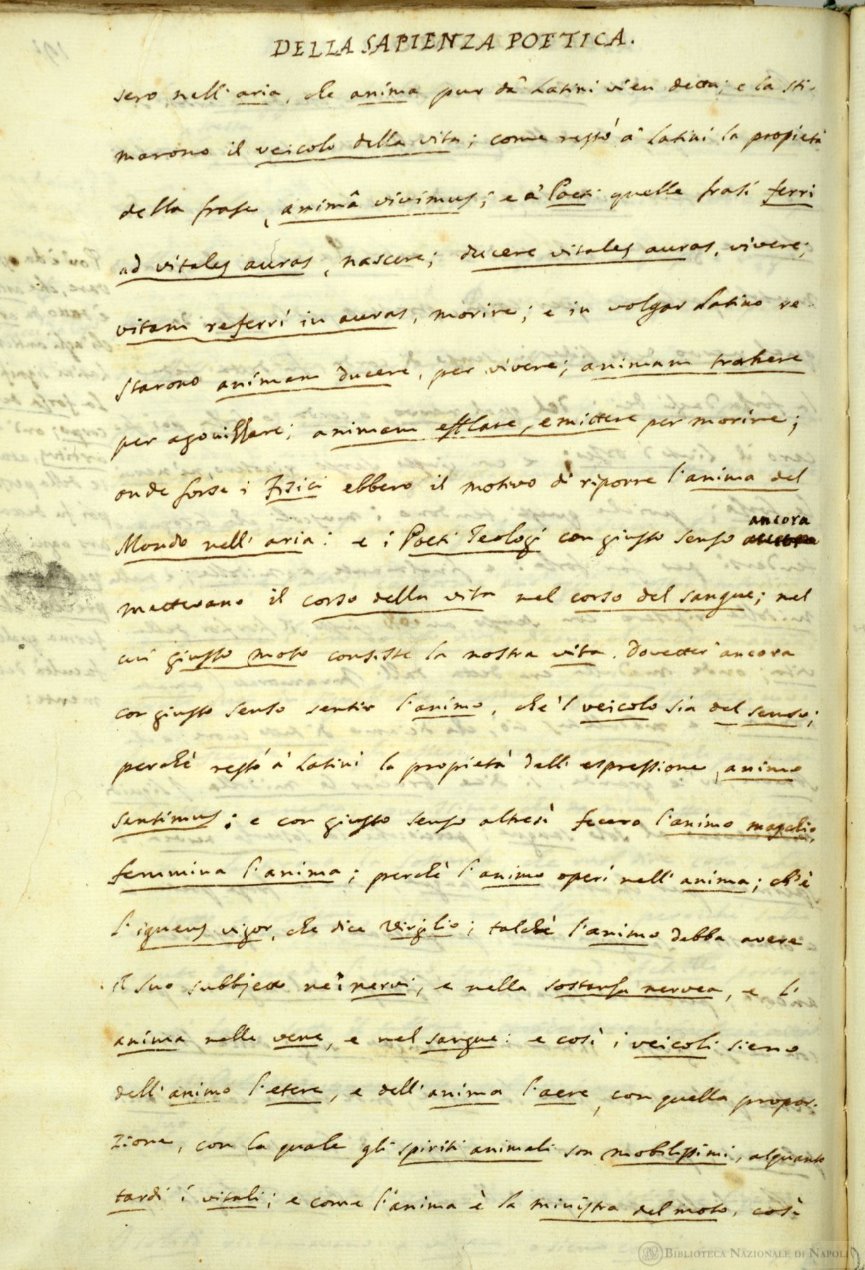 DELLA SAPIENZA POETICA.
sero nell'aria, che anima pur da' Latini vien detta; e la sti-
marono il veicolo della vita; come restò a' Latini la propietà
della frase, animâ vivimus; e a' Poeti quelle frasi ferri
ad vitales auras, nascere; ducere vitales auras, vivere;
vitam referri in auras, morire; e in volgar Latino re-
starono animam ducere, per vivere; animam trahere
per agonizzare; animam efflare, emittere per morire;
onde forse i Fisici ebbero il motivo di riporre l'anima del
Mondo nell'aria: e i Poeti Teologi con giusto senso ancora
mettevano il corso della vita nel corso del sangue; nel
cui giusto moto consiste la nostra vita. Dovetter' ancora
con giusto senso sentir l'animo, ch'è 'l veicolo sia del senso;
perchè restò a' Latini la propietà dell'espressione, animo
sentimus; e con giusto senso altresì fecero l'animo maschio,
femmina l'anima; perchè l'animo operi nell'anima; ch'è
l'igneus vigor, che dice Virgilio; talchè l'animo debba avere
il suo subbjetto ne' nervi, e nella sostanza nervea, e l'
anima nelle vene, e nel sangue: e così i veicoli sieno
dell'animo l'etere, e dell'anima l'aere, con quella propor-
zione, con la quale gli spiriti animali son mobilissimi, alquanto
tardi i vitali; e come l'anima è la ministra del moto, così
BIBLIOTECA NAZIONALE DI NAPOLI